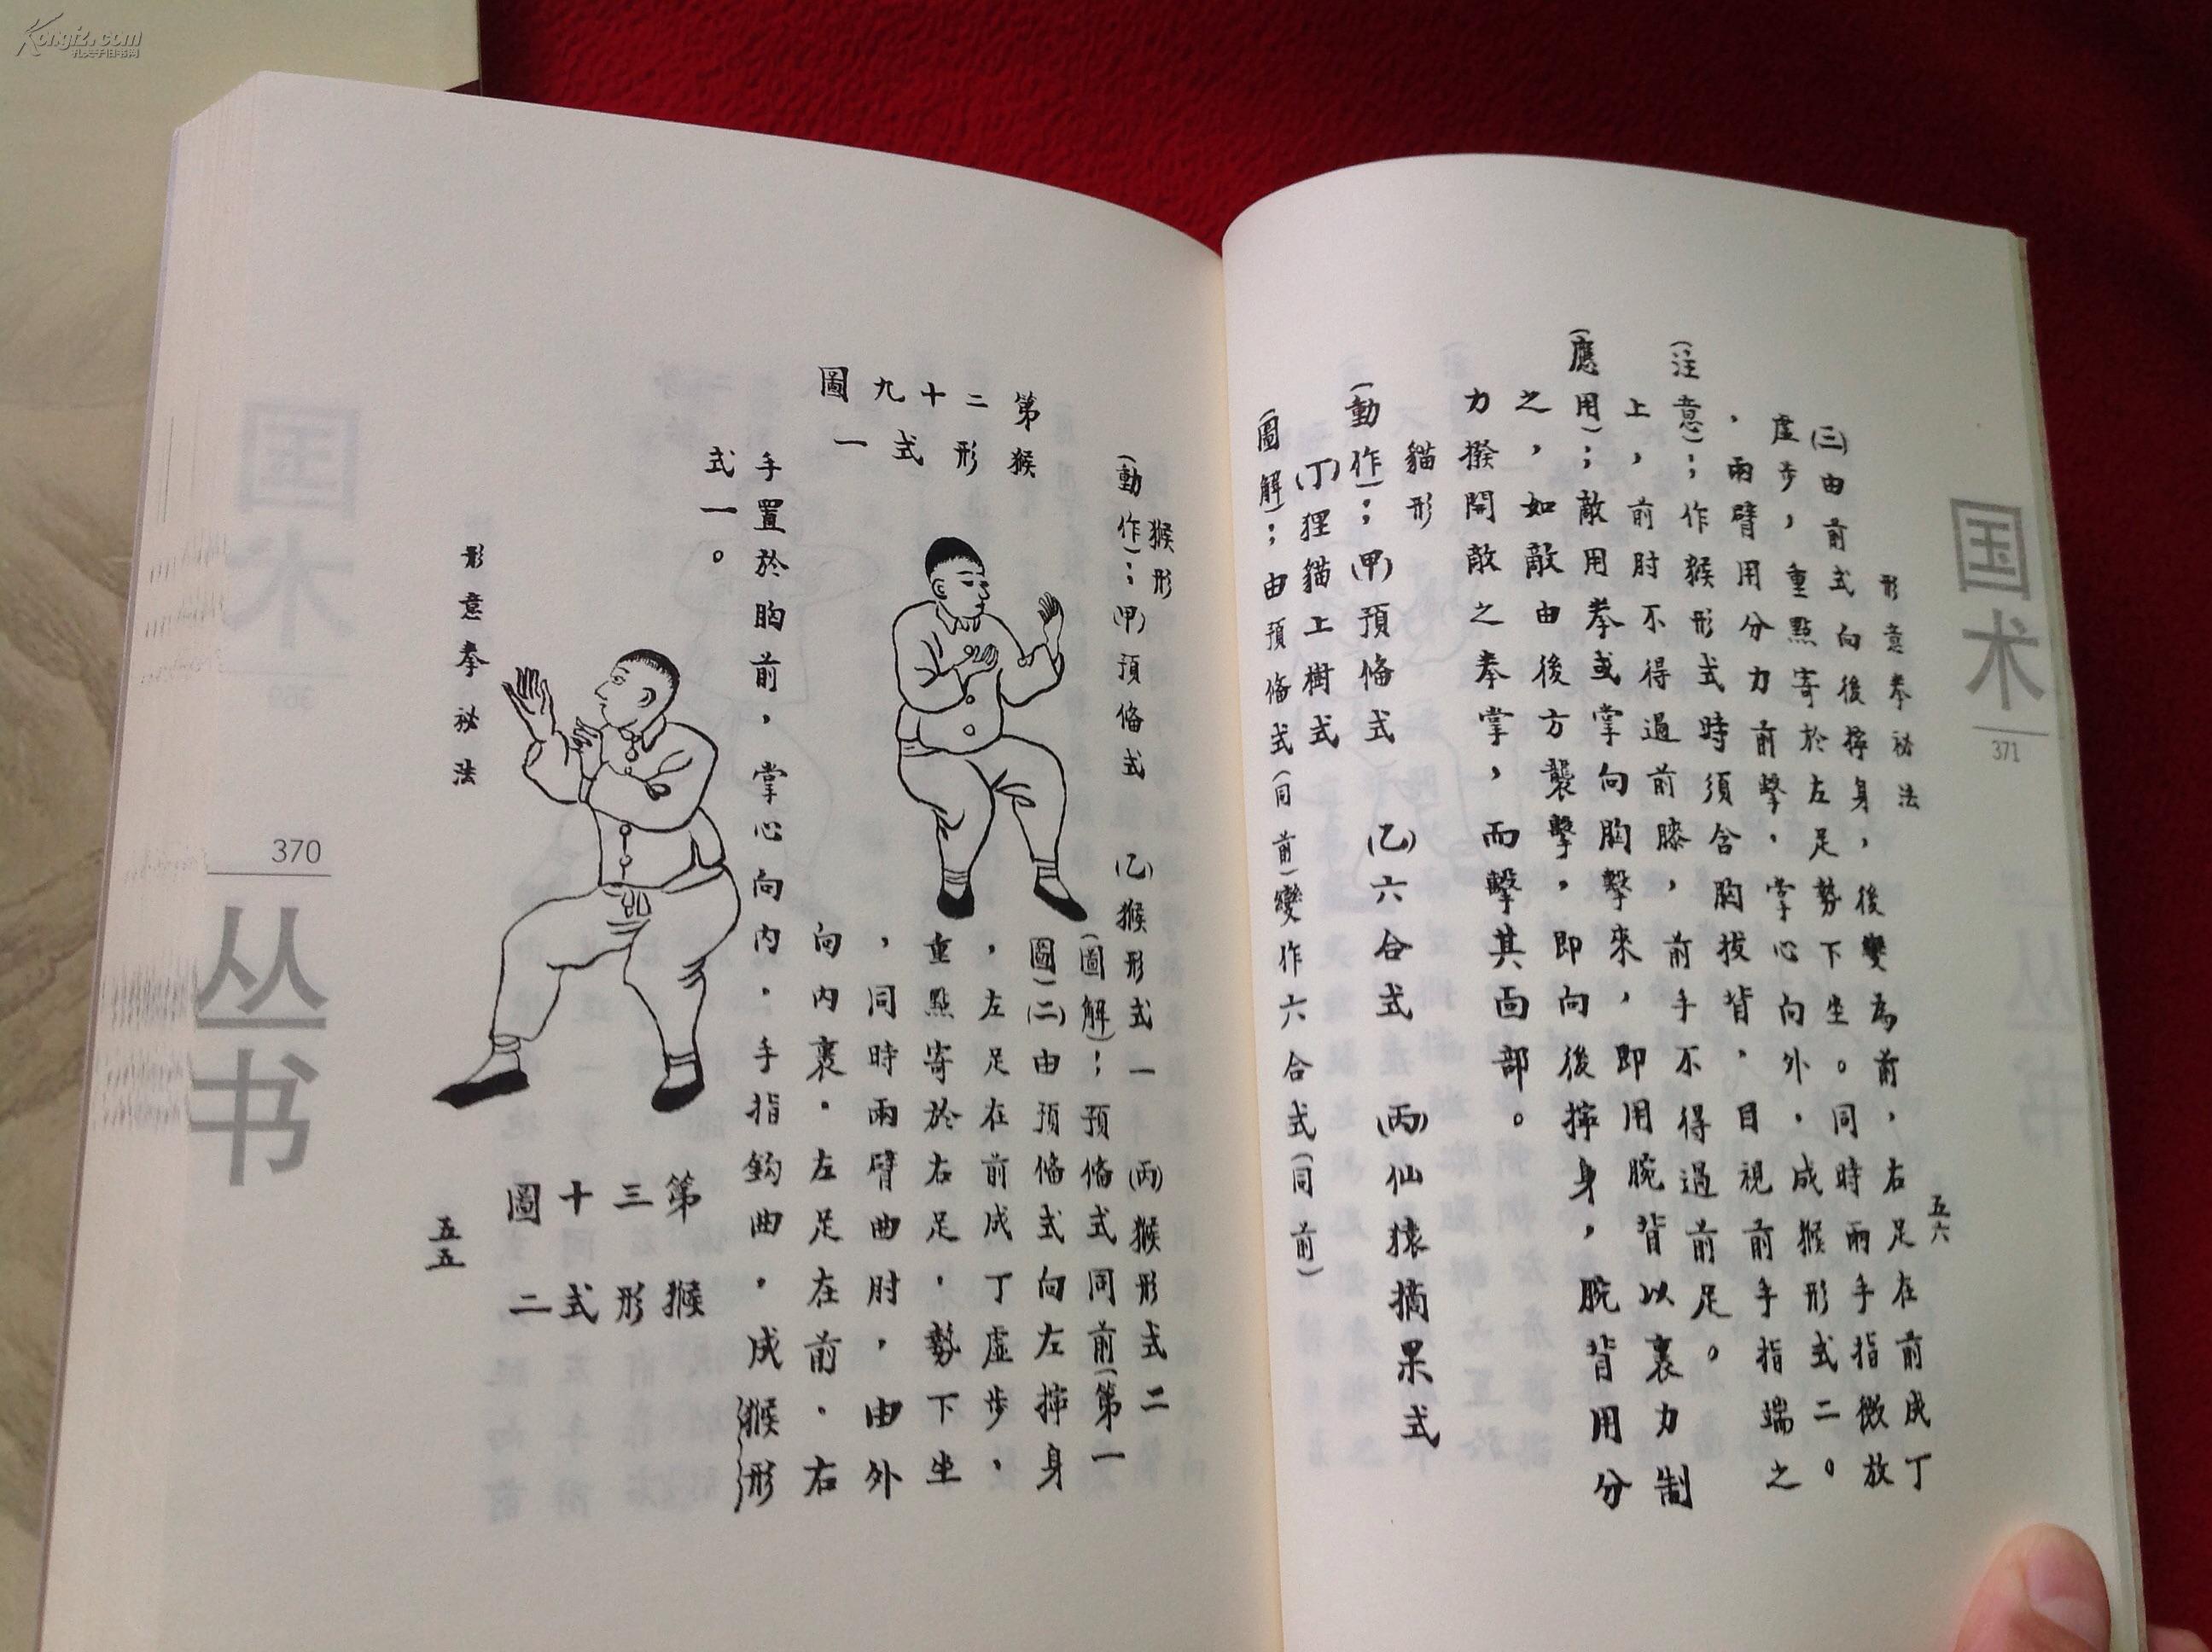 Kongfz.com
孔夫子旧书网
猴形
(動作)；(甲)預俻式 (乙)猴形式一 (丙)猴形式二
(圖解)；預俻式同前(第一
圖)(二)由預俻式向左擰身
，左足在前成丁虛步，
重點寄於右足．勢下坐
，同時兩臂曲肘，由外
向內裹．左足在前．右
第二十九圖
猴形式一
手置於胸前，掌心向內．手指鈎曲．成猴形
式一。
第三十圖
猴形式二
形意拳祕法
五五
370
丛书
国术
371
形意拳祕法
五六
(三)由前式向後擰身，後變為前，右足在前成丁
虛步，重點寄於左足勢下坐。同時兩手指微放
，兩臂用分力前擊．掌心向外．成猴形式二。
(注意)；作猴形式時須含胸拔背．目視前手指端之
上，前肘不得過前膝，前手不得過前足。
(應用)；敵用拳或掌向胸擊來，即用腕背以裹力制
之，如敵由後方襲擊，即向後擰身，腕背用分
力撥開敵之拳掌，而擊其面部。
貓形
(動作)；(甲)預俻式 (乙)六合式 (丙)仙猿摘果式
(丁)狸貓上樹式
(圖解)；由預俻式(同前)變作六合式(同前)